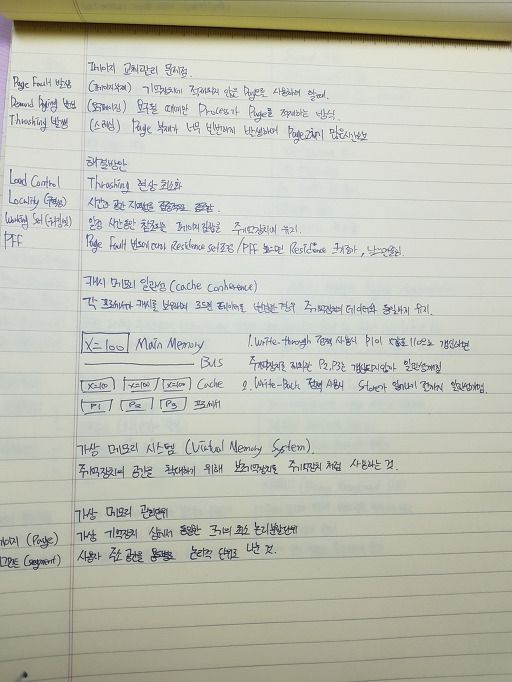 페이지 교체관리 문제점.
Page Fault 발생 (페이지부재) 기억장치에 적재되지 않은 Page를 사용하려 할때.
Demand Paging 발생 (요구페이징) 요구될 때에만 Process가 Page를 적재하는 방식.
Thrashing 발생 (스레싱) Page 부재가 너무 빈번하게 발생하여 Page교체에 많은시간소요
해결방안
Load Control Thrashing 현상 최소화
Locality (구역성) 시간과 공간 지역성을 집중적으로
Working Set (워킹셋) 일정 시간동안 참조되는 페이지 집합을 주기억장치에 유지.
PFF Page Fault 빈도에 따라 Residence set 조정 / PFF 높으면 Residence 크기증가, 낮으면줄임
캐시 메모리 일관성 (cache conherence)
각 프로세서가 캐시를 보유하여 로드한 데이터를 변경한 경우 주기억장치의 데이터와 동일하게 유지.
X=100 Main Memory
Bus
X=100 X=100 X=100 Cache
P1 P2 P3 프로세서
1. Write-through 정책 사용시 P1이 X값을 110으로 갱신하면
주기억장치를 제외한 P2, P3는 갱신되지않아 일관성깨짐
2. Write-Back 정책 사용시 Store가 일어나기 전까지 일관성깨짐.
가상 메모리 시스템 (Virtual Memory System).
주기억장치의 공간을 확대하기 위해 보조기억장치를 주기억장치 처럼 사용하는 것.
가상 메모리 관리단위
페이지 (Page) 가상 기억장치 상에서 동일한 크기의 최소 논리분할단위
세그먼트 (segment) 사용자 주소 공간을 논리적 단위로 나눈 것.